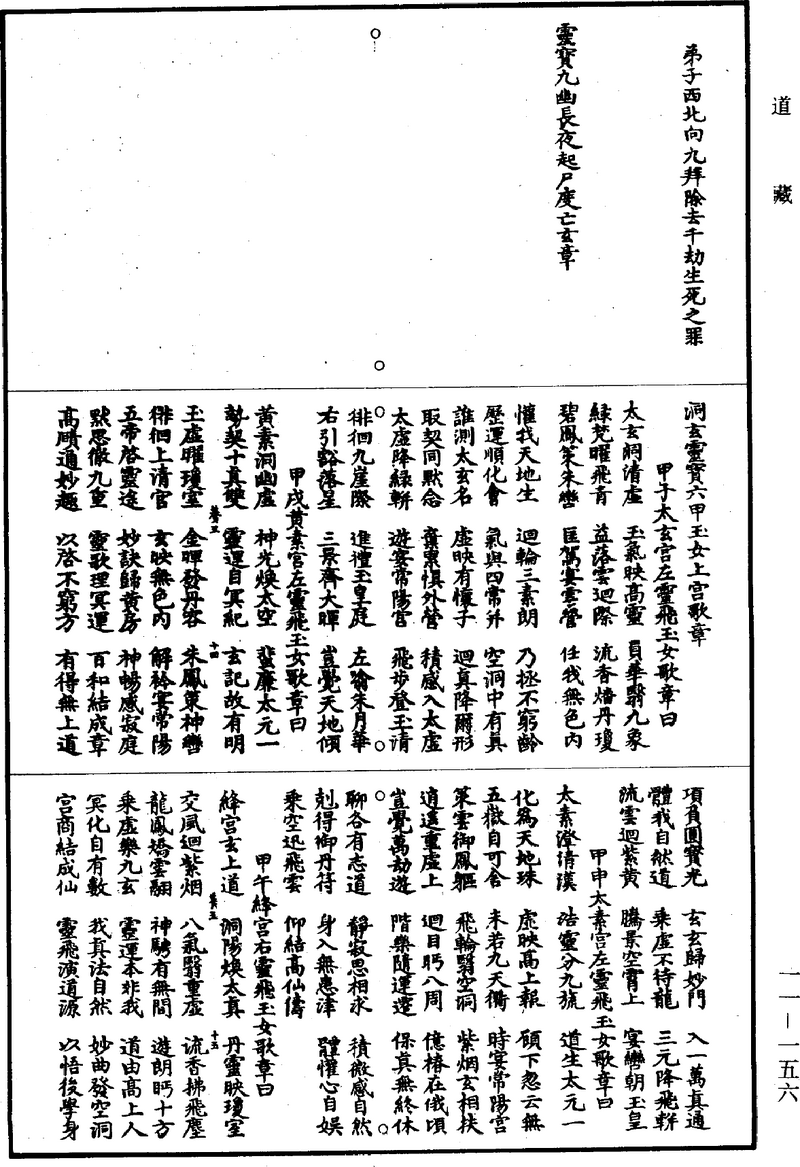 道藏
弟子西北向九拜除去千劫生死之罪
靈寶九幽長夜起尸度亡玄章
洞玄靈寶六甲玉女上宫歌章
甲子太玄宫左靈飛玉女歌章曰
太玄洞清虛 玉氣映高靈 員華翳九象
綠梵曜飛青 益落雲迴際 流香燔丹瓊
碧鳳策朱轡 匡駕宴雲營 任我無色内
懽我天地生 迴輪三素朗 乃拯不窮齡
歷運順化會 氣與四常并 空洞中有真
誰測太玄名 虛映有懷子 迴真降爾形
取契同默念 棄累慎外營 積感入太虛
太虛降綠軿 遊宴常陽官 飛步登玉清
徘徊九崖際 進禮玉皇庭 左踰朱月華
右引豁落星 三景齊大暉 豈覺天地傾
甲戌黄素宫左靈飛玉女歌章曰
黄素洞幽虛 神光煥太空 蜚廉太元一
勢契十真雙 靈運自冥紀 玄記故有明
玉虛曜瓊室 金暉發丹容 朱鳳策神轡
徘徊上清官 玄映無色内 解衿宴常陽
五帝啓靈途 妙訣歸黄房 神暢感寂庭
默思徹九重 靈歌理冥運 百和結成章
高賾通妙趣 以啓不窮方 有得無上道
項負圓寶光 玄玄歸妙門 入一萬真通
體我自然道 乘虛不待龍 三元降飛軿
流雲迴紫黄 騰景空霄上 宴轡朝玉皇
甲申太素宫左靈飛玉女歌章曰
太素澄清漠 浩靈分九旒 道生太元一
化爲天地珠 虛映高上報 顧下忽云無
五嶽自可舍 未若九天衢 時宴常陽宫
策雲御鳳軀 飛輪翳空洞 紫烟玄相扶
逍遥重虛上 迴目眄八周 億椿在俄頃
豈覺萬劫遊 階樂隨運遷 保真無終休
聊各有志道 靜寂思相求 積微感自然
剋得御丹符 身入無恚津 體懽心自娱
乘空迅飛雲 仰結高仙儔
甲午絳宫右靈飛玉女歌章曰
絳宫玄上道 洞陽煥太真 丹靈映瓊室
交風迴紫烟 八氣翳重虛 流香拂飛塵
龍鳳矯雲翮 神騁有無間 遊朗眄十方
乘虛樂九玄 靈運本非我 道由高上人
冥化自有數 我真法自然 妙曲發空洞
宫商結成仙 靈飛演道源 以悟後學身
一一—一五六